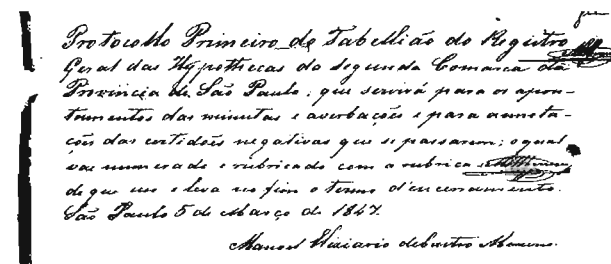 Protocollo Primeiro do Tabellião do Registro
Geral das Hypothecas da Segunda Comarca da
Provincia de São Paulo; que servirá para os apon-
tamentos das minutas e averbações e para annota-
ções das certidões negativas que se passarem; o qual
vae numerado e rubricado com a rubrica
de que uso e leva no fim o termo d'encerramento.
São Paulo 5 de Março de 1847.
Manoel Eliziario de Castro Menezes.